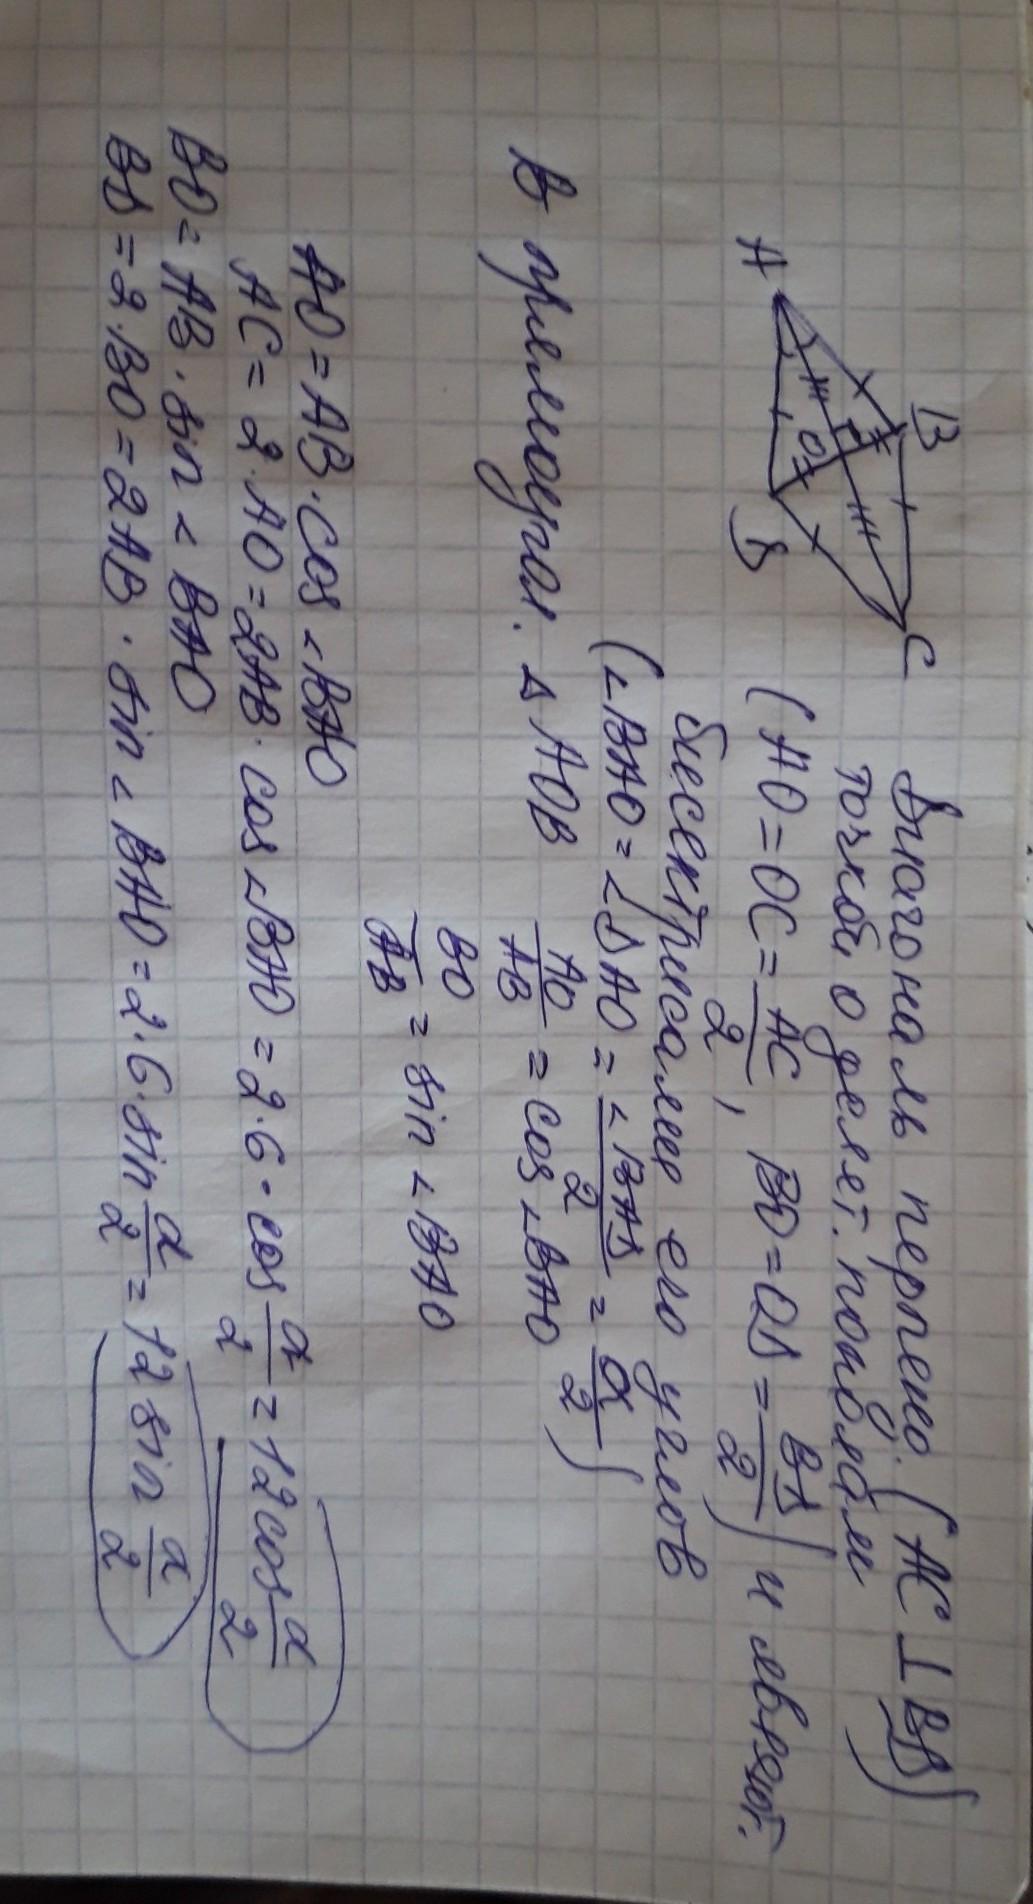 A B C D O
Диагональ перпенд. (AC ⊥ BD)
точкой О делят. пополам
(AO = OC = AC/2, BO = OD = BD/2) и явяют.
биссектрисами его углов
(∠BAO = ∠DAO = ∠BAD/2 = α/2)
В прямоугол. Δ AOB AO/AB = cos ∠BAO
BO/AB = sin ∠BAO
AO = AB · cos ∠BAO
AC = 2 · AO = 2AB · cos ∠BAO = 2 · 6 · cos α/2 = 12 cos α/2
BO = AB · sin ∠BAO
BD = 2 · BO = 2AB · sin ∠BAO = 2 · 6 · sin α/2 = 12 sin α/2